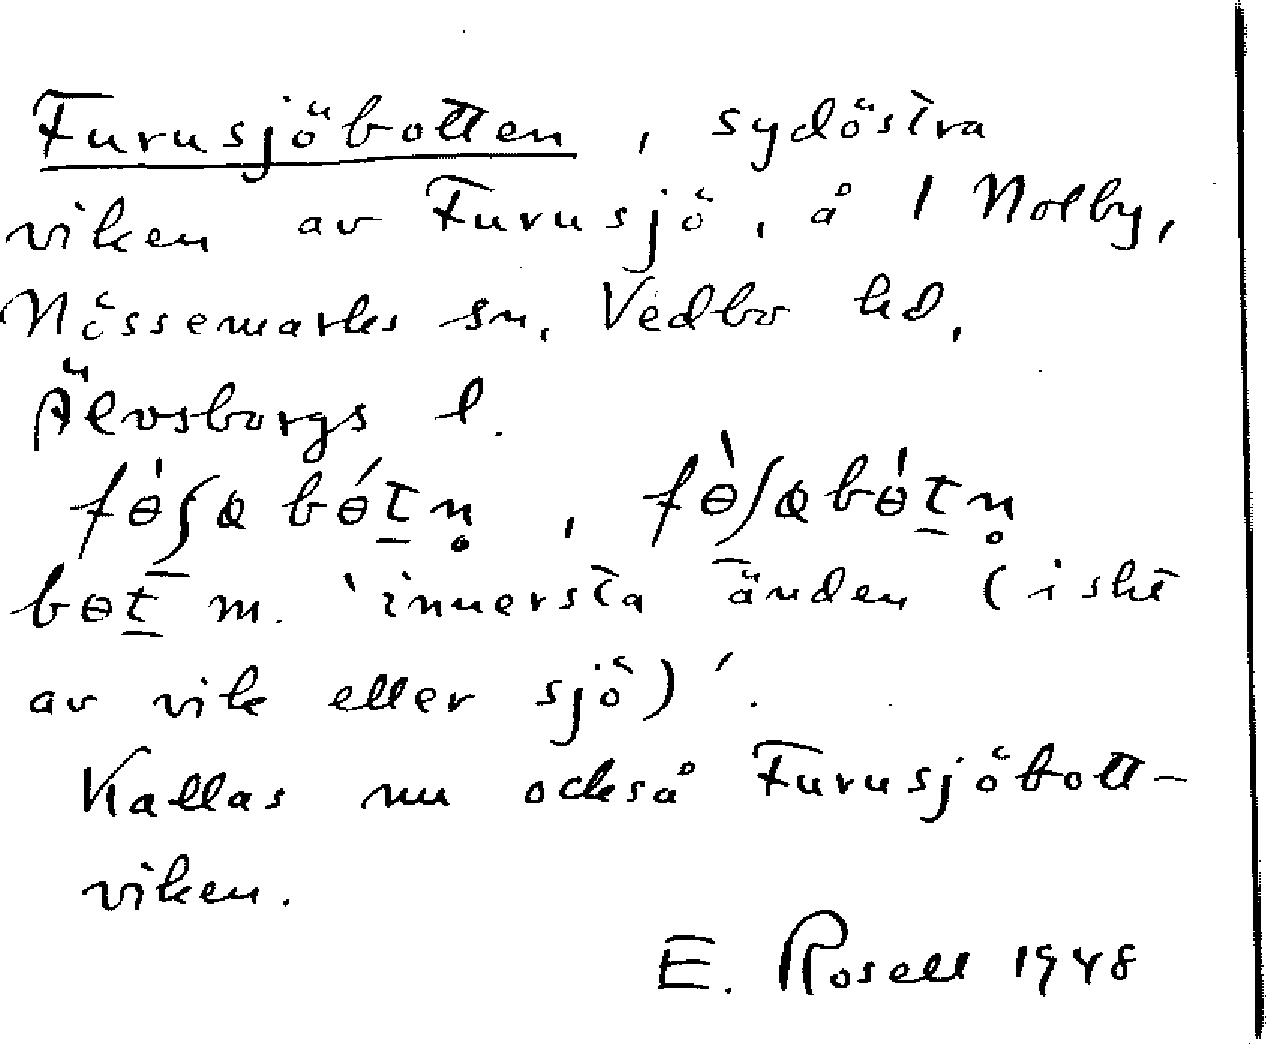 Furusjöbotten, sydöstra
viken av Furusjö, å 1 Nolby,
Nössemarks sn, Vedbo hd,
Älvsborgs l.
fɵ̀ʃɷ bɵ́t̲n̥, fɵ̀ʃɷbɵ̀t̲n̥
bɵt̲ m. 'innersta änden (i sht
av vik eller sjö)'.
Kallas nu också Furusjöbott-
viken.
E. Rosell 1948